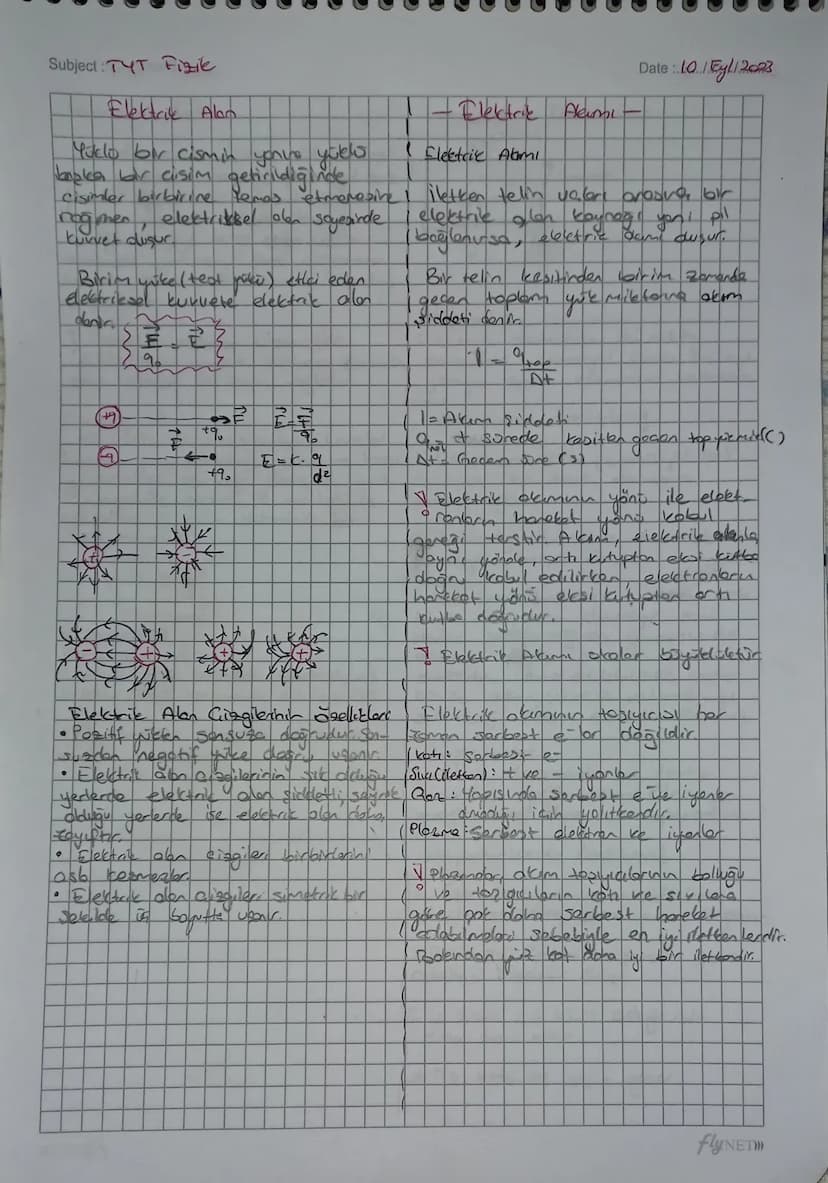 Subject : TYT Fizik
Date : 10 / Eyl / 2023
Elektrik Alan
Yüklü bir cismin yanına yüklü
başka bir cisim getirildiğinde
cisimler birbirine temas etmemesine
rağmen, elektriksel alan sayesinde
kuvvet oluşur.
Birim yüke (test yükü) etki eden
elektriksel kuvvete elektrik alan
denir.
F/q₀ = E
+q
+q₀
E
E = F/q₀
-q
E
+q₀
E = k · q/d²
+
-
-
+
+
+
Elektrik Alan Çizgilerinin Özellikleri
• Pozitif yükten sonsuza doğrudur, son-
suzdan negatif yüke doğru uzanır.
• Elektrik alan çizgilerinin sık olduğu
yerlerde elektrik alan şiddetli, seyrek
olduğu yerlerde ise elektrik alan daha
zayıftır.
• Elektrik alan çizgileri birbirlerini
asla kesmezler.
• Elektrik alan çizgileri simetrik bir
şekilde üç boyutta uzanır.
- Elektrik Akımı -
Elektrik Akımı
İletken telin uçları arasına bir
elektrik alan kaynağı yani pil
bağlanırsa, elektrik akımı oluşur.
Bir telin kesitinden birim zamanda
geçen toplam yük miktarına akım
şiddeti denir.
I = qtop/Δt
I = Akım Şiddeti
q = t sürede kesitten geçen top. yük mik(C)
Δt = Geçen süre (s)
! Elektrik akımının yönü ile elekt-
ronların hareket yönü kabul
gereği terstir. Akım, elektrik alanla
aynı yönde, artı kutuptan eksi kutba
doğru kabul edilirken, elektronların
hareket yönü eksi kutuptan artı
kutba doğrudur.
! Elektrik Akımı skaler büyüklüktür
Elektrik akımının taşıyıcısı her
zaman serbest e- lar değildir.
Katı: Serbest e-
Sıvı (iletken): + ve - iyonlar
Gaz: Yapısında serbest e ve iyonlar
olmadığı için yalıtkandır.
Plazma: Serbest elektron ve iyonlar
! Plazmalar, akım taşıyıcılarının bolluğu
ve taşıyıcıların katı ve sıvılara
göre çok daha serbest hareket
edebilmeleri sebebiyle en iyi iletkenlerdir.
Bakırdan yüz kat daha iyi bir iletkendir.
flyNET